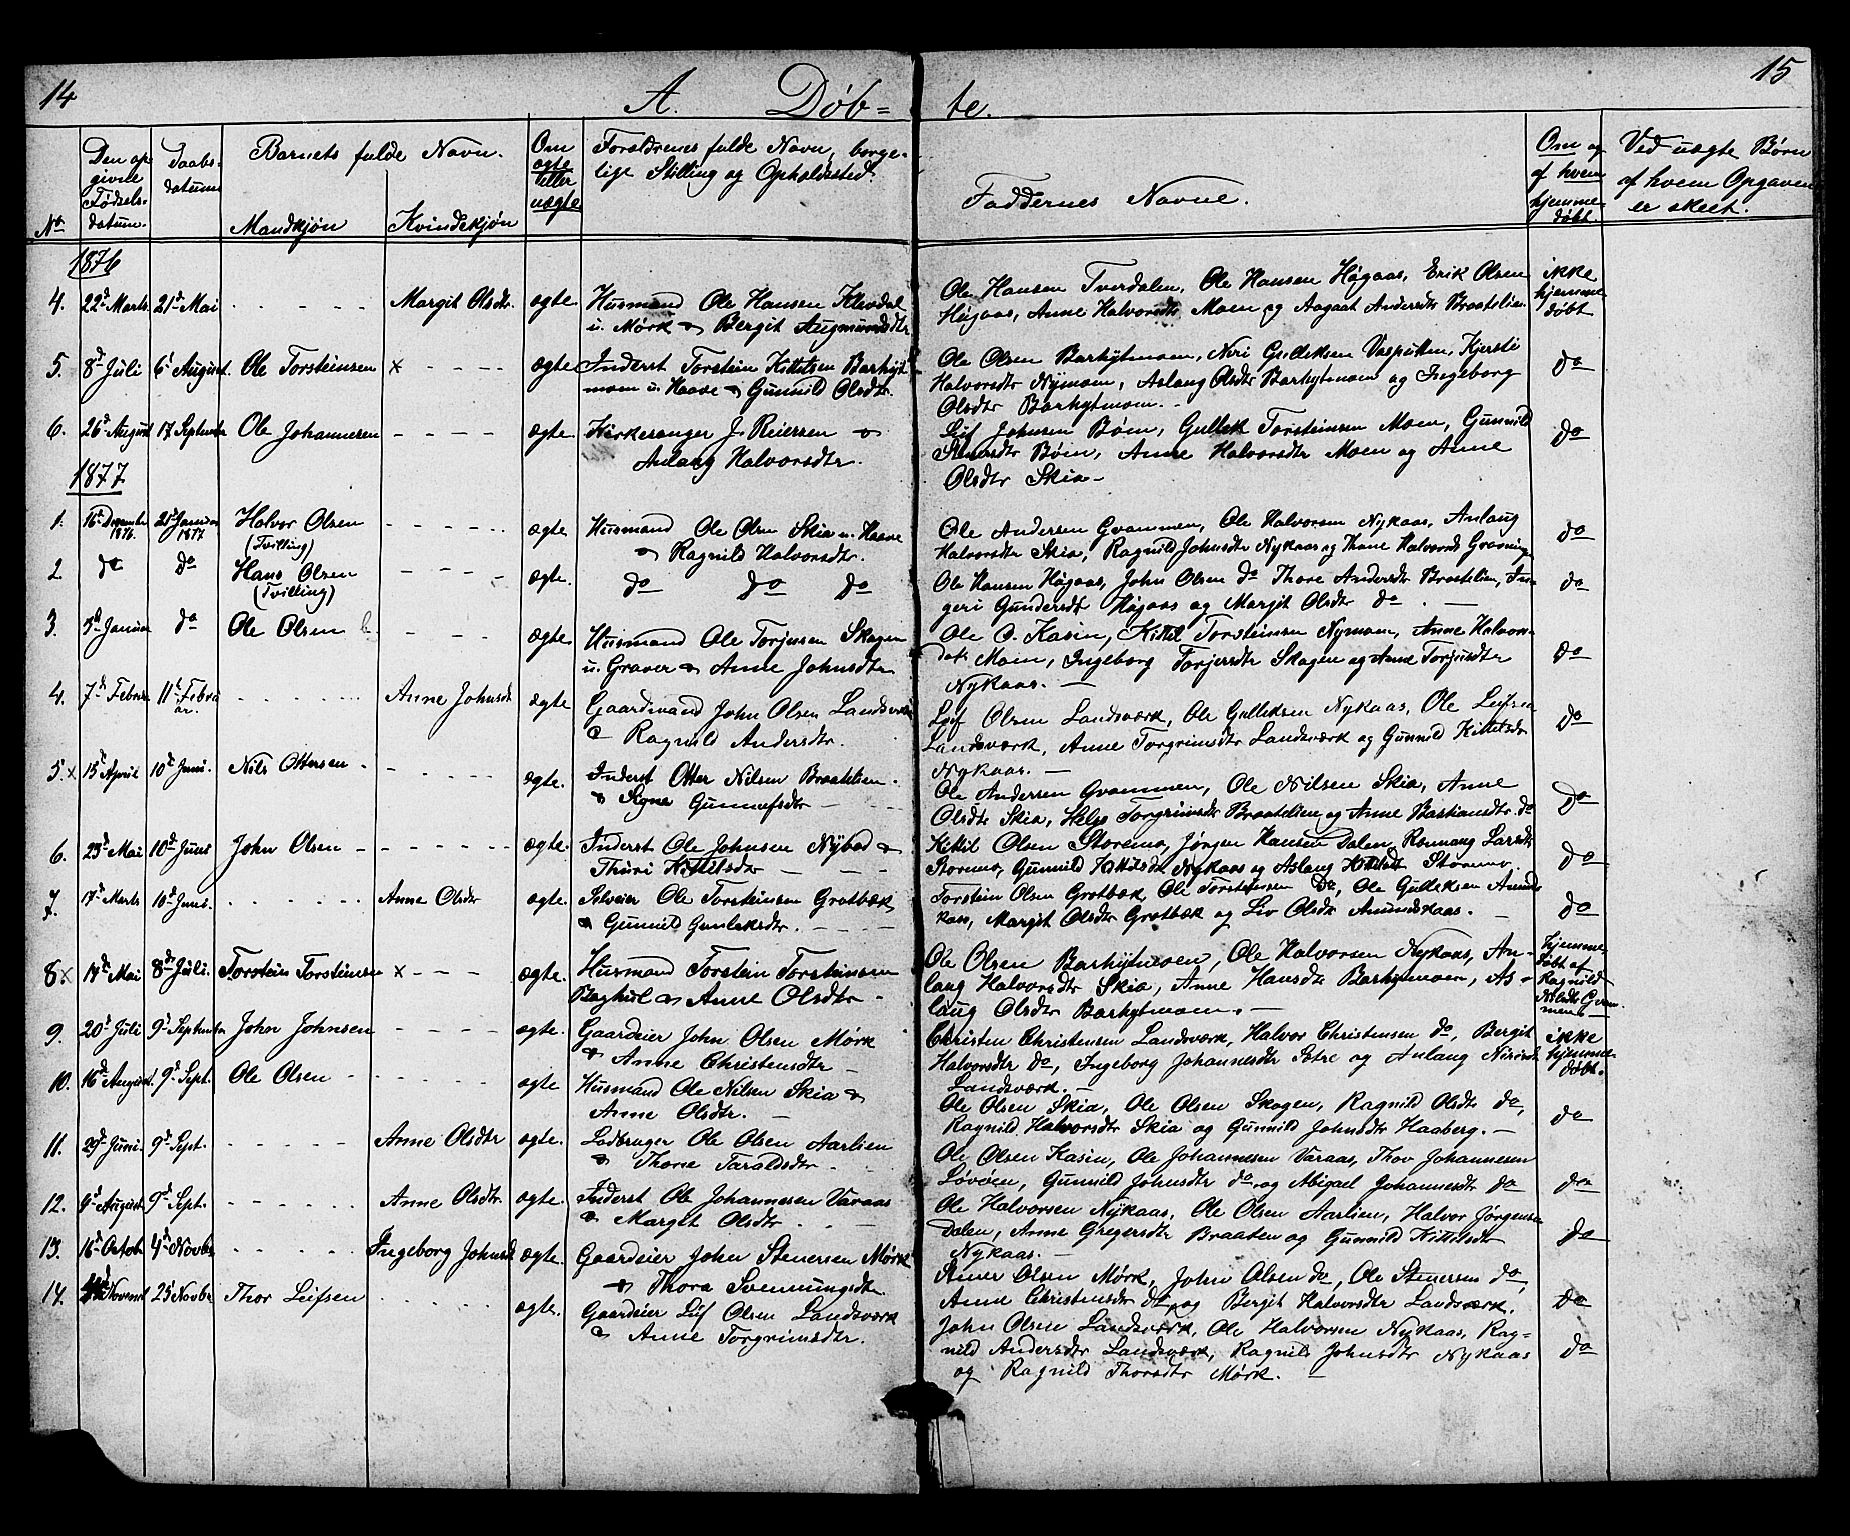 14
A. Døb-
te.
15
No
Den op-
givne
Fødsels-
datum.
Daabs-
datum
Barnets fulde Navn.
Mandkjøn
Kvindekjøn
Om
ægte
eller
uægte
Forældrenes fulde Navn, borger-
lige Stilling og Opholdssted.
Faddernes Navne.
Om og
af hvem
hjemme-
døbt
Ved uægte Børn
af hvem Opgaven
er skeet.
1876
4. 22d Marts 21d Mai - - - - - Margit Olsdtr. ægte. Husmand Ole Hansen Klevdal
u. Mørk & Bergit Augmundsdtr
Ole Hansen Tverdalen, Ole Hansen Høgaas, Erik Olsen
Høgaas, Anne Halvorsdtr Moen og Aagaat Andersdtr Braatelien
ikke
hjemme
døbt
5. 8d Juli 6t August Ole Torsteinsen x - - - - ægte Inderst Torstein Kittelsen Barhyt
moen u. Haave & Gunnild Olsdtr.
Ole Olsen Barhytmoen, Neri Gulleksen Vasputten, Kjersti
Halvorsdtr Nymoen, Aslaug Olsdtr Barhytmoen og Ingeborg
Olsdtr Barhytmoen. -
do
6. 26d August 17 Septembr Ole Johannesen - - - - ægte. Kirkesanger J. Reiersen &
Anlaug Halvorsdtr.
Leif Johnsen Bøen, Gullek Torsteinsen Moen, Gunnild
Stenersdtr Bøen, Anne Halvorsdtr Moen og Anne
Olsdtr Skia -
do
1877
1. 16d December 1876. 21d Januar 1877 Halvor Olsen
(Tvilling)
- - - - - ægte Husmand Ole Olsen Skia u. Haave
& Ragnild Halvorsdtr.
Ole Andersen Gvammen, Ole Halvorsen Nykaas, Anlaug
Halvorsdtr Skia, Ragnild Johnsdtr Nykaas og Thone Halvorsdtr
do
2 do do Hans Olsen
(Tvilling)
- - - - ægte. do do do
Ole Hansen Høgaas, John Olsen do Thore Andersdtr Braatelien, In-
geri Gundersdtr Høgaas og Margit Olsdtr do. -
do
3. 5d Januar do Ole Olsen - - - ægte. Husmand Ole Torjusen Skogen
u. Graver & Anne Johnsdtr
Ole O. Kasin, Kittil Torsteinsen Nymoen, Anne Halvors-
datr Moen, Ingeborg Torjersdtr Skogen og Anne Torjusdtr
Nykaas. -
do
4. 7d Februar 11t Febru
ar.
- - - - Anne Johnsdtr ægte Gaardmand John Olsen Landsværk
& Ragnild Andersdtr.
Leif Olsen Landsværk, Ole Gulleksen Nykaas, Ole Leifsen
Landsværk, Anne Torgrimsdtr Landsværk og Gunnild Kittilsdtr
Nykaas. -
do
5 x 15d April 10d Juni. Nils Ottersen - - - - - ægte. Inderst Otter Nilsen Braatelien -
& Signe Gunnufsdtr -
Ole Andersen Gvammen, Ole Nilsen Skia, Anne
Olsdtr Skia, Helge Torgrimsdtr Braatelien og Anne Bastiansdtr do
do
6. 23d Mai 10d Juni John Olsen - - - - - - ægte. Inderst Ole Johnsen Nybod &
Thuri Kittilsdtr - - -
Kittil Olsen Storemo, Jørgen Hansen Dalen, Rønnaug Larsdtr
Storemo, Gunnild Kittilsdtr Nykaas og Aslaug Kittilsdtr Storemo
do
7. 17d Marts 10d Juni. - - - - - Anne Olsdtr ægte. Selveier Ole Torsteinsen Grotbæk
& Gunnild Gunleksdtr. - - - -
Torstein Olsen Grotbæk, Ole Torsteinsen do, Ole Gulleksen Amunds-
kaas, Margit Olsdtr Grotbæk og Liv Olsdtr Amundskaas. -
do
8 x 18de Mai 8de Juli. Torstein Torsteinsen x - - - ægte. Husmand Torstein Torsteinsen
Baghul & Anne Olsdtr -
Ole Olsen Barhytmoen, Ole Halvorsen Nykaas, An-
laug Halvorsdtr Skia, Anne Hansdtr Barhytmoen, As-
laug Olsdtr Barhytmoen. -
hjemme-
døbt af
Ragnild
9. 20d Juli 9d Septembr John Johnsen - - - - ægte. Gaardeier John Olsen Mørk
& Anne Christensdtr -
Christen Christensen Landsværk, Halvor Christensen do, Bergit
Halvorsdtr do, Ingeborg Johannesdtr Setre og Anlaug
Landsværk. -
ikke
hjemme
døbt.
10. 16d August 9d Sept. Ole Olsen - - - - - ægte Husmand Ole Nilsen Skia &
Anne Olsdtr. -
Ole Olsen Skia, Ole Olsen Skogen, Ragnild Olsdtr do,
Ragnild Halvorsdtr Skia og Gunnild Johnsdtr Haaberg. -
do
11. 29d Juni. 9d Sept. - - - - - Anne Olsdtr ægte. Ladbruger Ole Olsen Aarlien
& Thone Taraldsdtr -
Ole Olsen Kasin, Ole Johannesen Varaas, Thov Johannesen
Løvøen, Gunnild Johnsdtr do og Abigael Johannesdtr do
do
12. 6d August 9d Sept. - - - - - Anne Olsdtr ægte. Inderst Ole Johannesen Varaas
& Margit Olsdtr. - - -
Ole Halvorsen Nykaas, Ole Olsen Aarlien, Halvor Jørgensen
Dalen, Anne Gregersdtr Braaten og Gunnild Kittilsdtr
Nykaas. -
do
13. 16d Octob. 4d Novbr - - - - - Ingeborg Johnsdtr ægte. Gaardeier John Stenersen Mørk
& Thora Svennungsdtr
Stener Olsen Mørk, John Olsen do, Ole Stenersen do,
Anne Christensdtr do og Bergit Halvorsdtr Landsværk.
do
14. Novembr 25d Novbr Thor Leifsen - - - - - ægte. Gaardeier Leif Olsen Landsværk
& Anne Torgrimsdtr.
John Olsen Landsværk, Ole Halvorsen Nykaas, Rag-
nild Andersdtr Landsværk, Ragnild Johnsdtr Nykaas
og Ragnild Thorsdtr Mørk. -
do